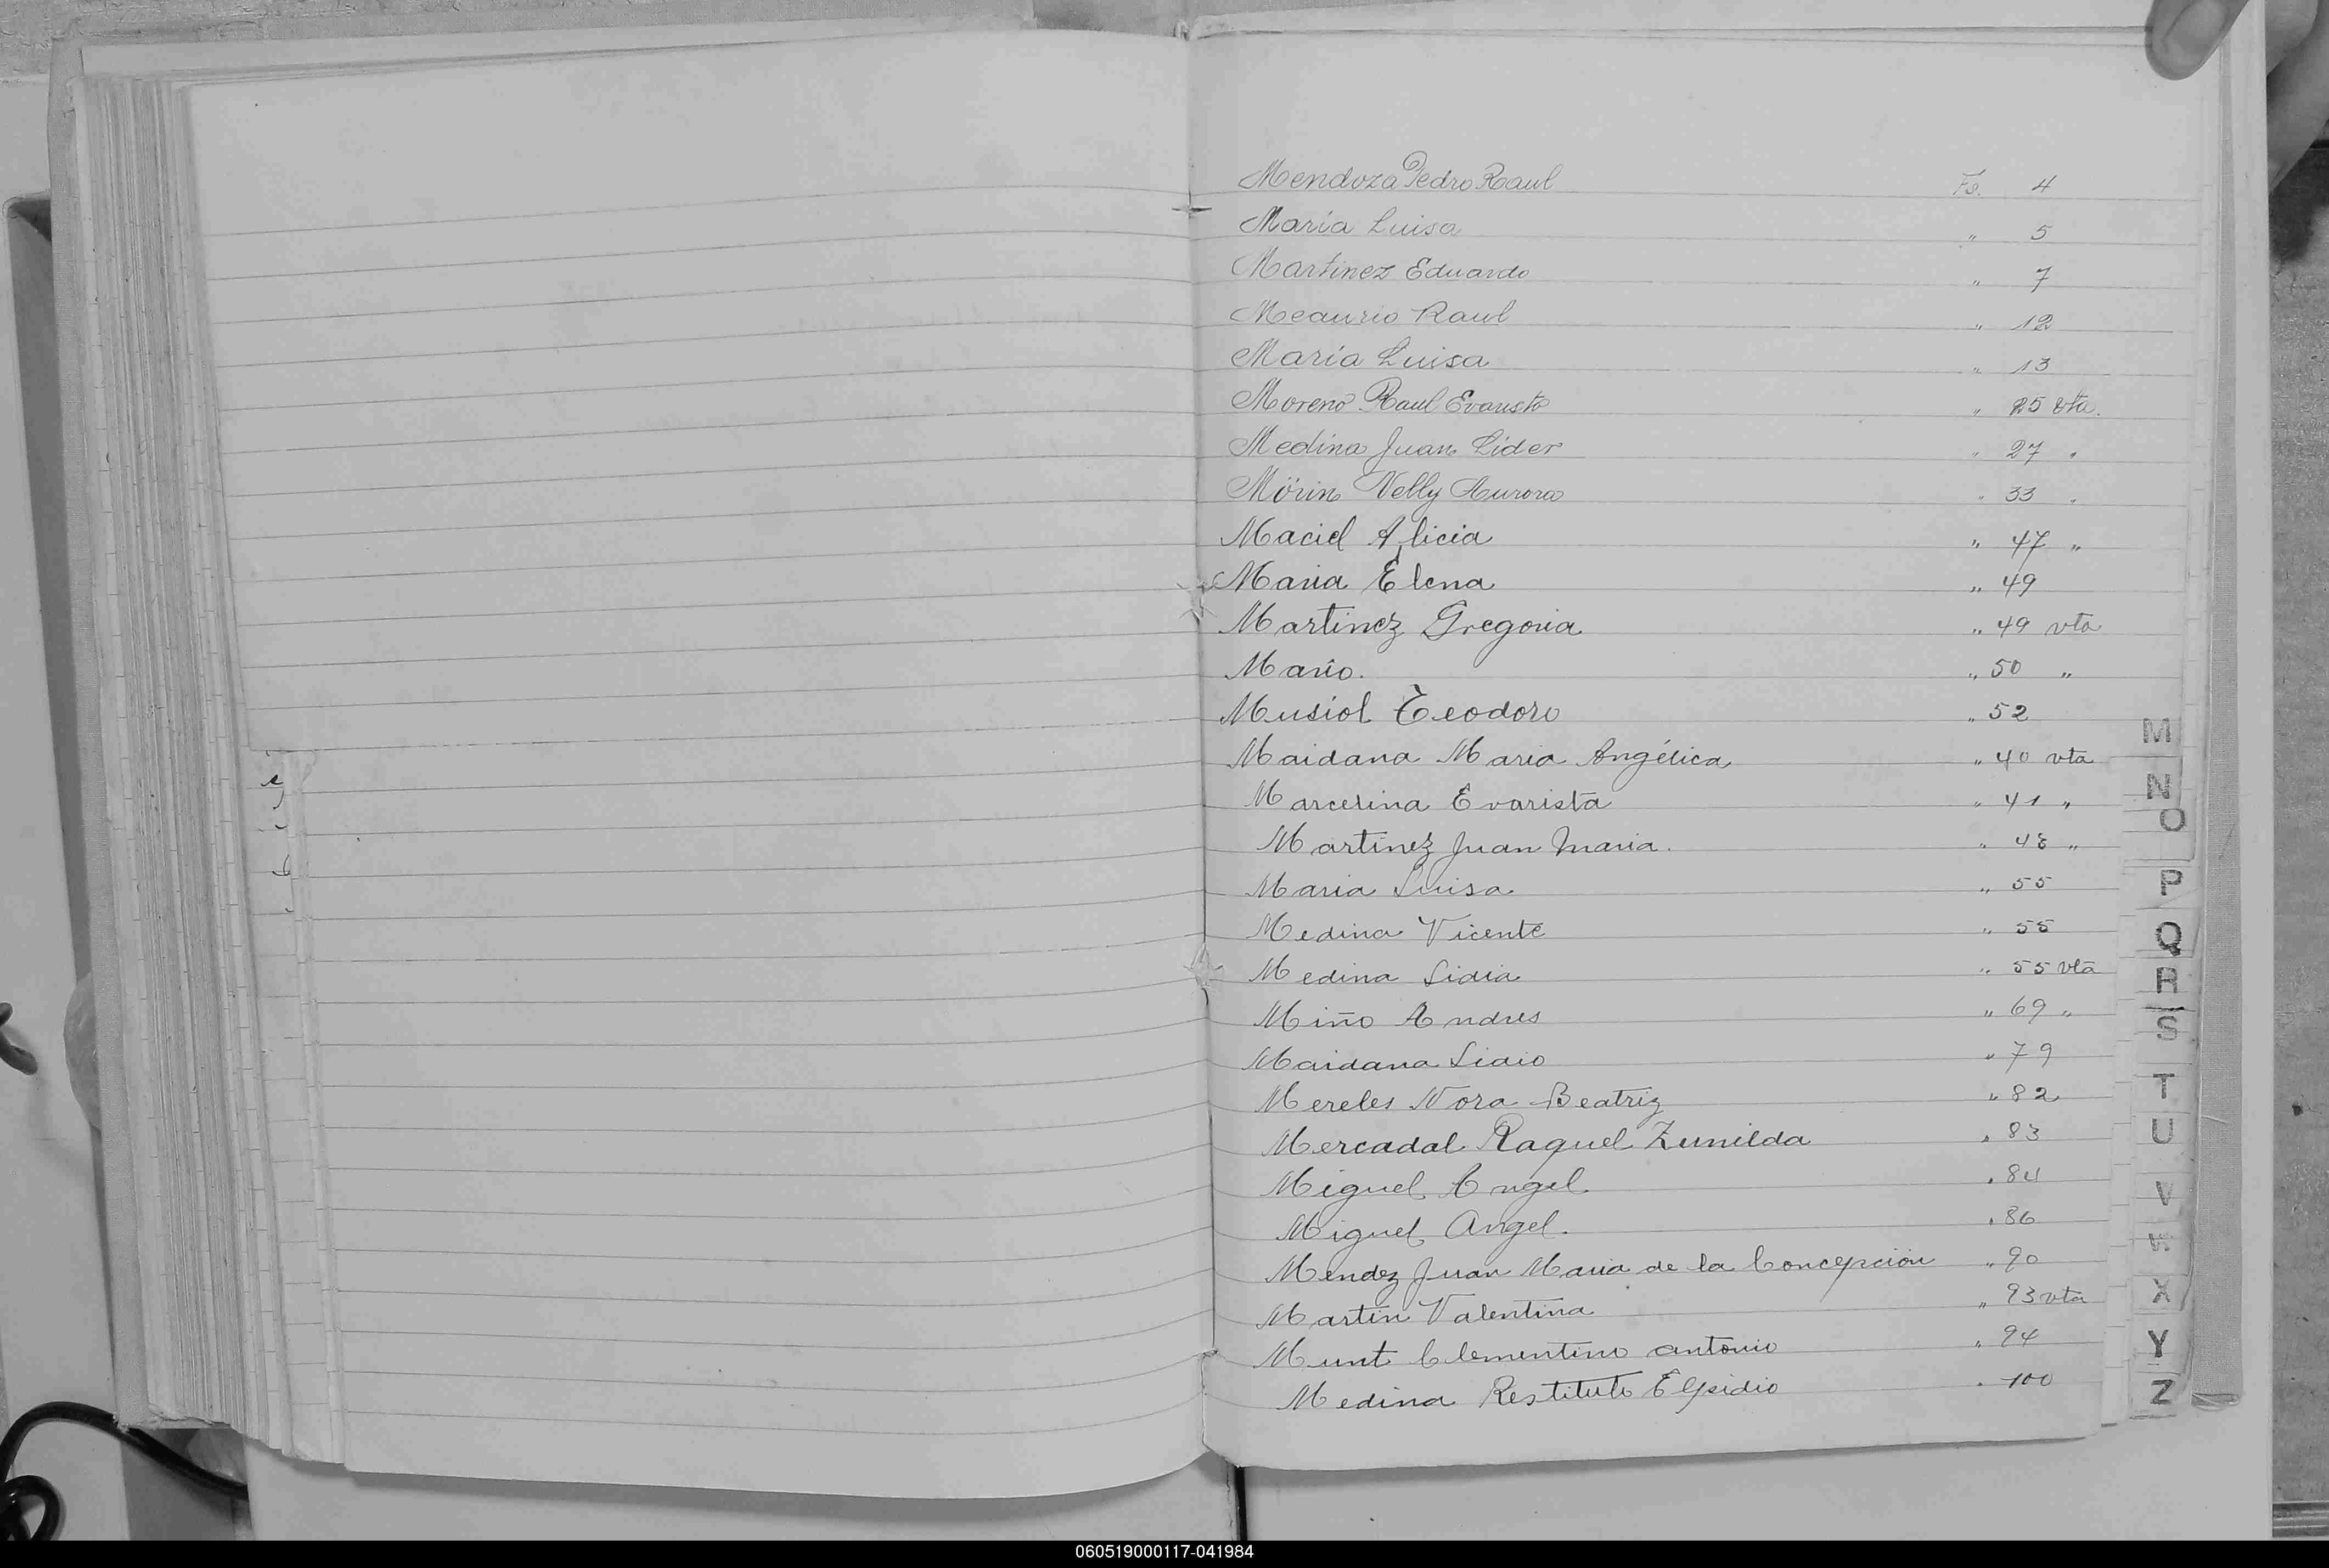 Mendoza Pedro Raul Fo. 4
María Luisa " 5
Martinez Eduardo " 7
Meaurio Raul " 12
María Luisa " 13
Moreno Raul Evausto " 25 vta.
Medina Juan Lider " 27 "
Mörin Nelly Aurora " 33 "
Maciel Alicia " 47 "
Maria Elena " 49
Martinez Gregoria " 49 vta
Mario. " 50 "
Musiol Teodoro " 52
Maidana Maria Angélica " 40 vta
Marcelina Evarista " 41 "
Martinez Juan Maria. " 48 "
Maria Luisa " 55
Medina Vicente " 55
Medina Lidia " 55 vta
Miño Andres " 69 "
Maidana Lidio " 79
Mereles Nora Beatriz " 82
Mercadal Raquel Zunilda " 83
Miguel Angel " 84
Miguel Angel. " 86
Mendez Juan Maria de la Concepción " 90
Martin Valentina " 93 vta
Munt Clementino antonio " 94
Medina Restituto Elpidio " 100
M
N
O
P
Q
R
S
T
U
V
W
X
Y
Z
060519000117-041984